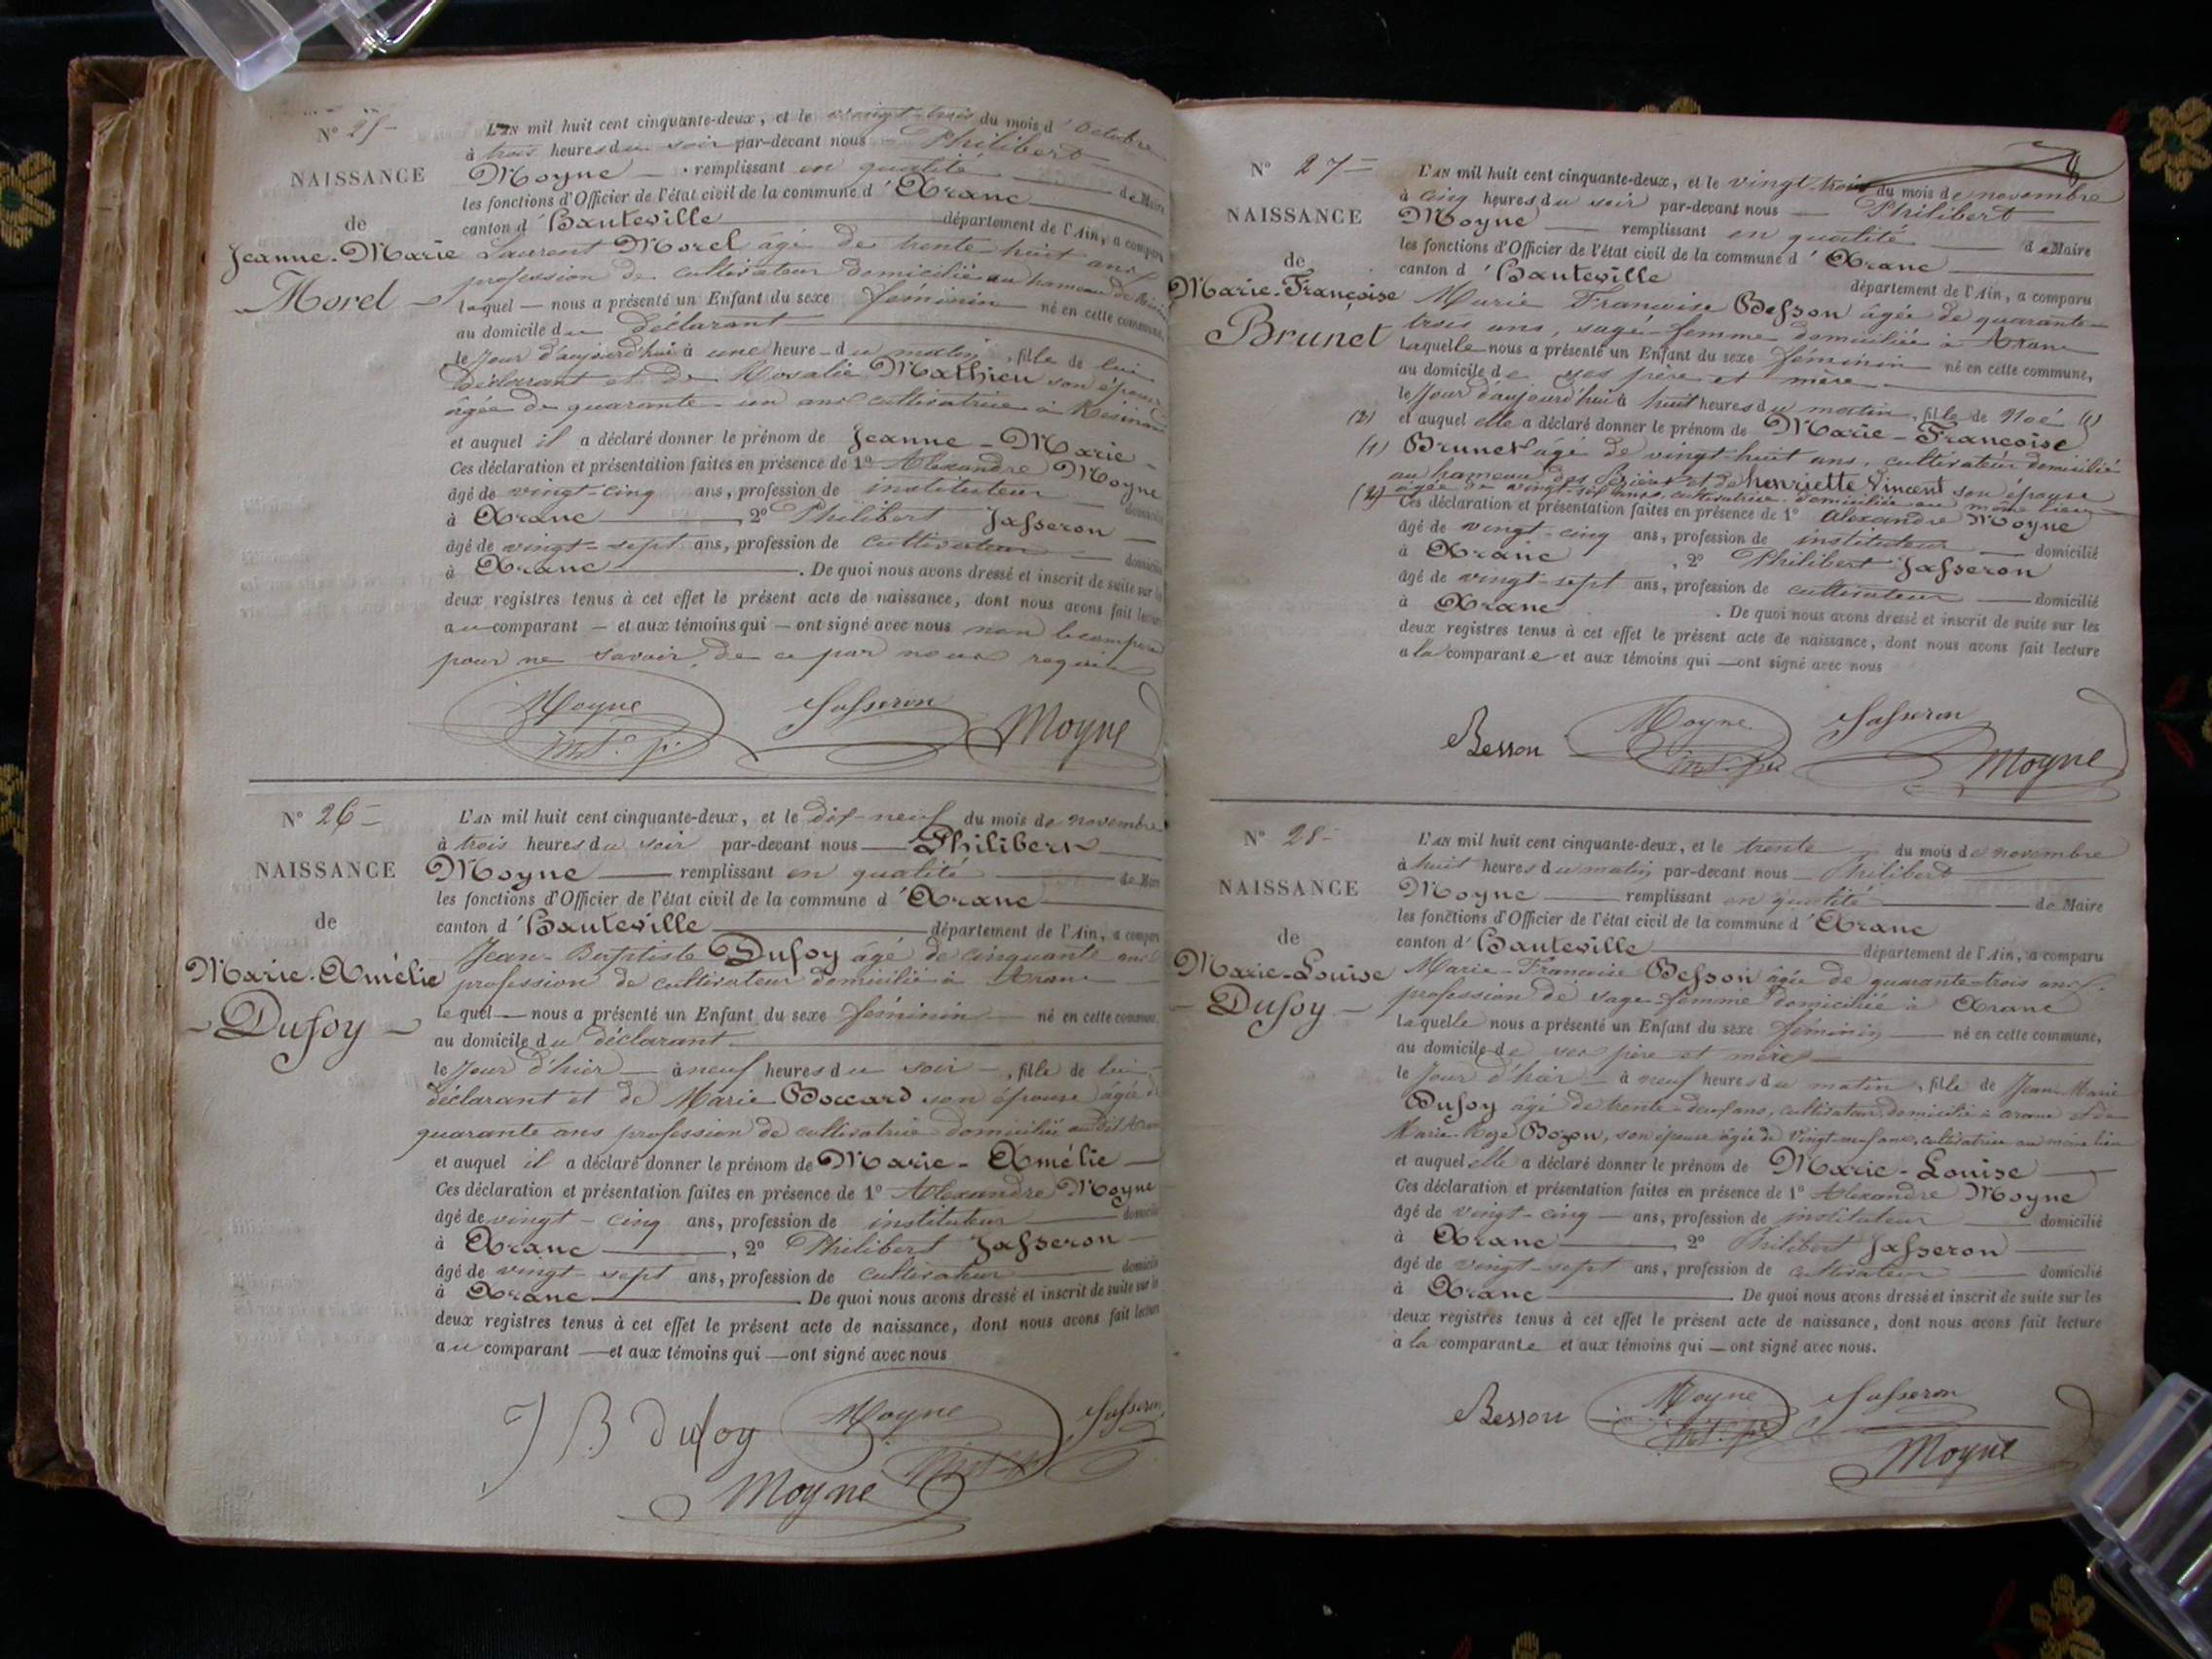 N° 25
NAISSANCE
de
Jeanne-Marie
Morel
L'AN mil huit cent cinquante-deux, et le vingt-trois du mois d'octobre
à trois heures du soir par-devant nous Philibert
Moyne remplissant en qualité de Maire
les fonctions d'Officier de l'état civil de la commune d'Aranc
canton d'Hauteville département de l'Ain, a comparu
Laurent Morel âgé de trente huit ans
profession de cultivateur domicilié au hameau de
lequel nous a présenté un Enfant du sexe féminin né en cette commune,
au domicile du déclarant
le jour d'aujourd'hui à une heure du matin, fille de lui
déclarant et de Rosalie Mathieu son épouse
âgée de quarante-un ans cultivatrice à Résinand
et auquel il a déclaré donner le prénom de Jeanne-Marie
Ces déclaration et présentation faites en présence de 1° Alexandre Moyne
âgé de vingt-cinq ans, profession de instituteur domicilié
à Aranc, 2° Philibert Jasseron
âgé de vingt-sept ans, profession de cultivateur domicilié
à Aranc. De quoi nous avons dressé et inscrit de suite sur les
deux registres tenus à cet effet le présent acte de naissance, dont nous avons fait lecture
au comparant et aux témoins qui ont signé avec nous non le comparant
pour ne savoir de ce par nous requis
Moyne Jasseron Moyne
inst. p.
N° 26
NAISSANCE
de
Marie-Amélie
Dufoy
L'AN mil huit cent cinquante-deux, et le dix-neuf du mois de novembre
à trois heures du soir par-devant nous Philibert
Moyne remplissant en qualité de Maire
les fonctions d'Officier de l'état civil de la commune d'Aranc
canton d'Hauteville département de l'Ain, a comparu
Jean-Baptiste Dufoy âgé de cinquante ans
profession de cultivateur domicilié à Aranc
lequel nous a présenté un Enfant du sexe féminin né en cette commune,
au domicile du déclarant
le jour d'hier à neuf heures du soir, fille de lui
déclarant et de Marie Boccard son épouse âgée de
quarante ans profession de cultivatrice domiciliée audit Aranc
et auquel il a déclaré donner le prénom de Marie-Amélie
Ces déclaration et présentation faites en présence de 1° Alexandre Moyne
âgé de vingt-cinq ans, profession de instituteur domicilié
à Aranc, 2° Philibert Jasseron
âgé de vingt-sept ans, profession de cultivateur domicilié
à Aranc. De quoi nous avons dressé et inscrit de suite sur les
deux registres tenus à cet effet le présent acte de naissance, dont nous avons fait lecture
au comparant et aux témoins qui ont signé avec nous
J B Dufoy Moyne Jasseron
Moyne
N° 27
NAISSANCE
de
Marie-Françoise
Brunet
L'AN mil huit cent cinquante-deux, et le vingt-trois du mois de novembre
à cinq heures du soir par-devant nous Philibert
Moyne remplissant en qualité de Maire
les fonctions d'Officier de l'état civil de la commune d'Aranc
canton d'Hauteville département de l'Ain, a comparu
Marie Françoise Besson âgée de quarante-
trois ans, sage-femme domiciliée à Aranc
laquelle nous a présenté un Enfant du sexe féminin né en cette commune,
au domicile de ses père et mère
le jour d'aujourd'hui à huit heures du matin, fille de Noé (1)
(2) et auquel elle a déclaré donner le prénom de Marie-Françoise
(1) Brunet âgé de vingt-huit ans, cultivateur domicilié
au hameau des et de henriette Vincent son épouse
âgée de vingt-six ans, cultivatrice domiciliée au même lieu
(2) Ces déclaration et présentation faites en présence de 1° Alexandre Moyne
âgé de vingt-cinq ans, profession de instituteur domicilié
à Aranc, 2° Philibert Jasseron
âgé de vingt-sept ans, profession de cultivateur domicilié
à Aranc. De quoi nous avons dressé et inscrit de suite sur les
deux registres tenus à cet effet le présent acte de naissance, dont nous avons fait lecture
a la comparante et aux témoins qui ont signé avec nous
Besson Moyne Jasseron
inst. Moyne
N° 28
NAISSANCE
de
Marie-Louise
Dufoy
L'AN mil huit cent cinquante-deux, et le trente du mois de novembre
à huit heures du matin par-devant nous Philibert
Moyne remplissant en qualité de Maire
les fonctions d'Officier de l'état civil de la commune d'Aranc
canton d'Hauteville département de l'Ain, a comparu
Marie-Françoise Besson âgée de quarante-trois ans
profession de sage-femme domiciliée à Aranc
laquelle nous a présenté un Enfant du sexe féminin né en cette commune,
au domicile de ses père et mère
le jour d'hier à neuf heures du matin, fille de Jean-Marie
Dufoy âgé de trente-deux ans, cultivateur domicilié à Aranc et de
Marie-Roze, son épouse âgée de vingt-neuf ans, cultivatrice au même lieu
et auquel elle a déclaré donner le prénom de Marie-Louise
Ces déclaration et présentation faites en présence de 1° Alexandre Moyne
âgé de vingt-cinq ans, profession de instituteur domicilié
à Aranc, 2° Philibert Jasseron
âgé de vingt-sept ans, profession de cultivateur domicilié
à Aranc. De quoi nous avons dressé et inscrit de suite sur les
deux registres tenus à cet effet le présent acte de naissance, dont nous avons fait lecture
à la comparante et aux témoins qui ont signé avec nous.
Besson Moyne Jasseron
inst. Moyne